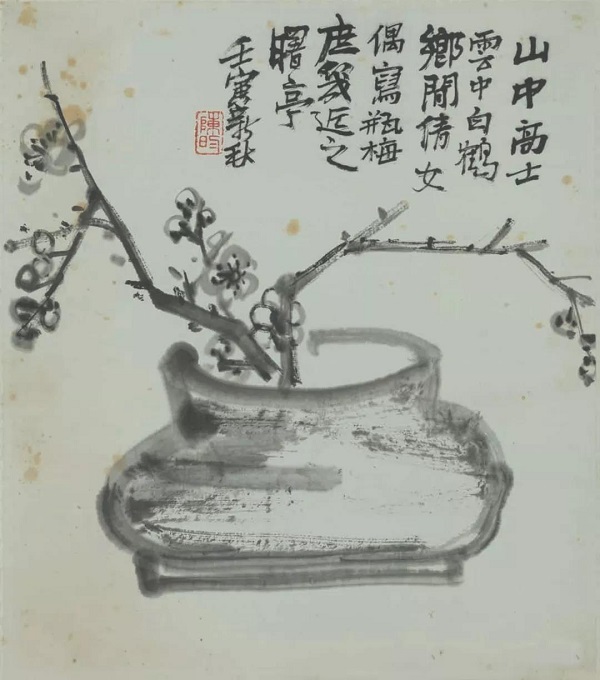 山中高士
雲中白鶴
鄉間倩女
偶寫瓶梅
庶幾近之
曙亭
壬寅新秋
陳昀